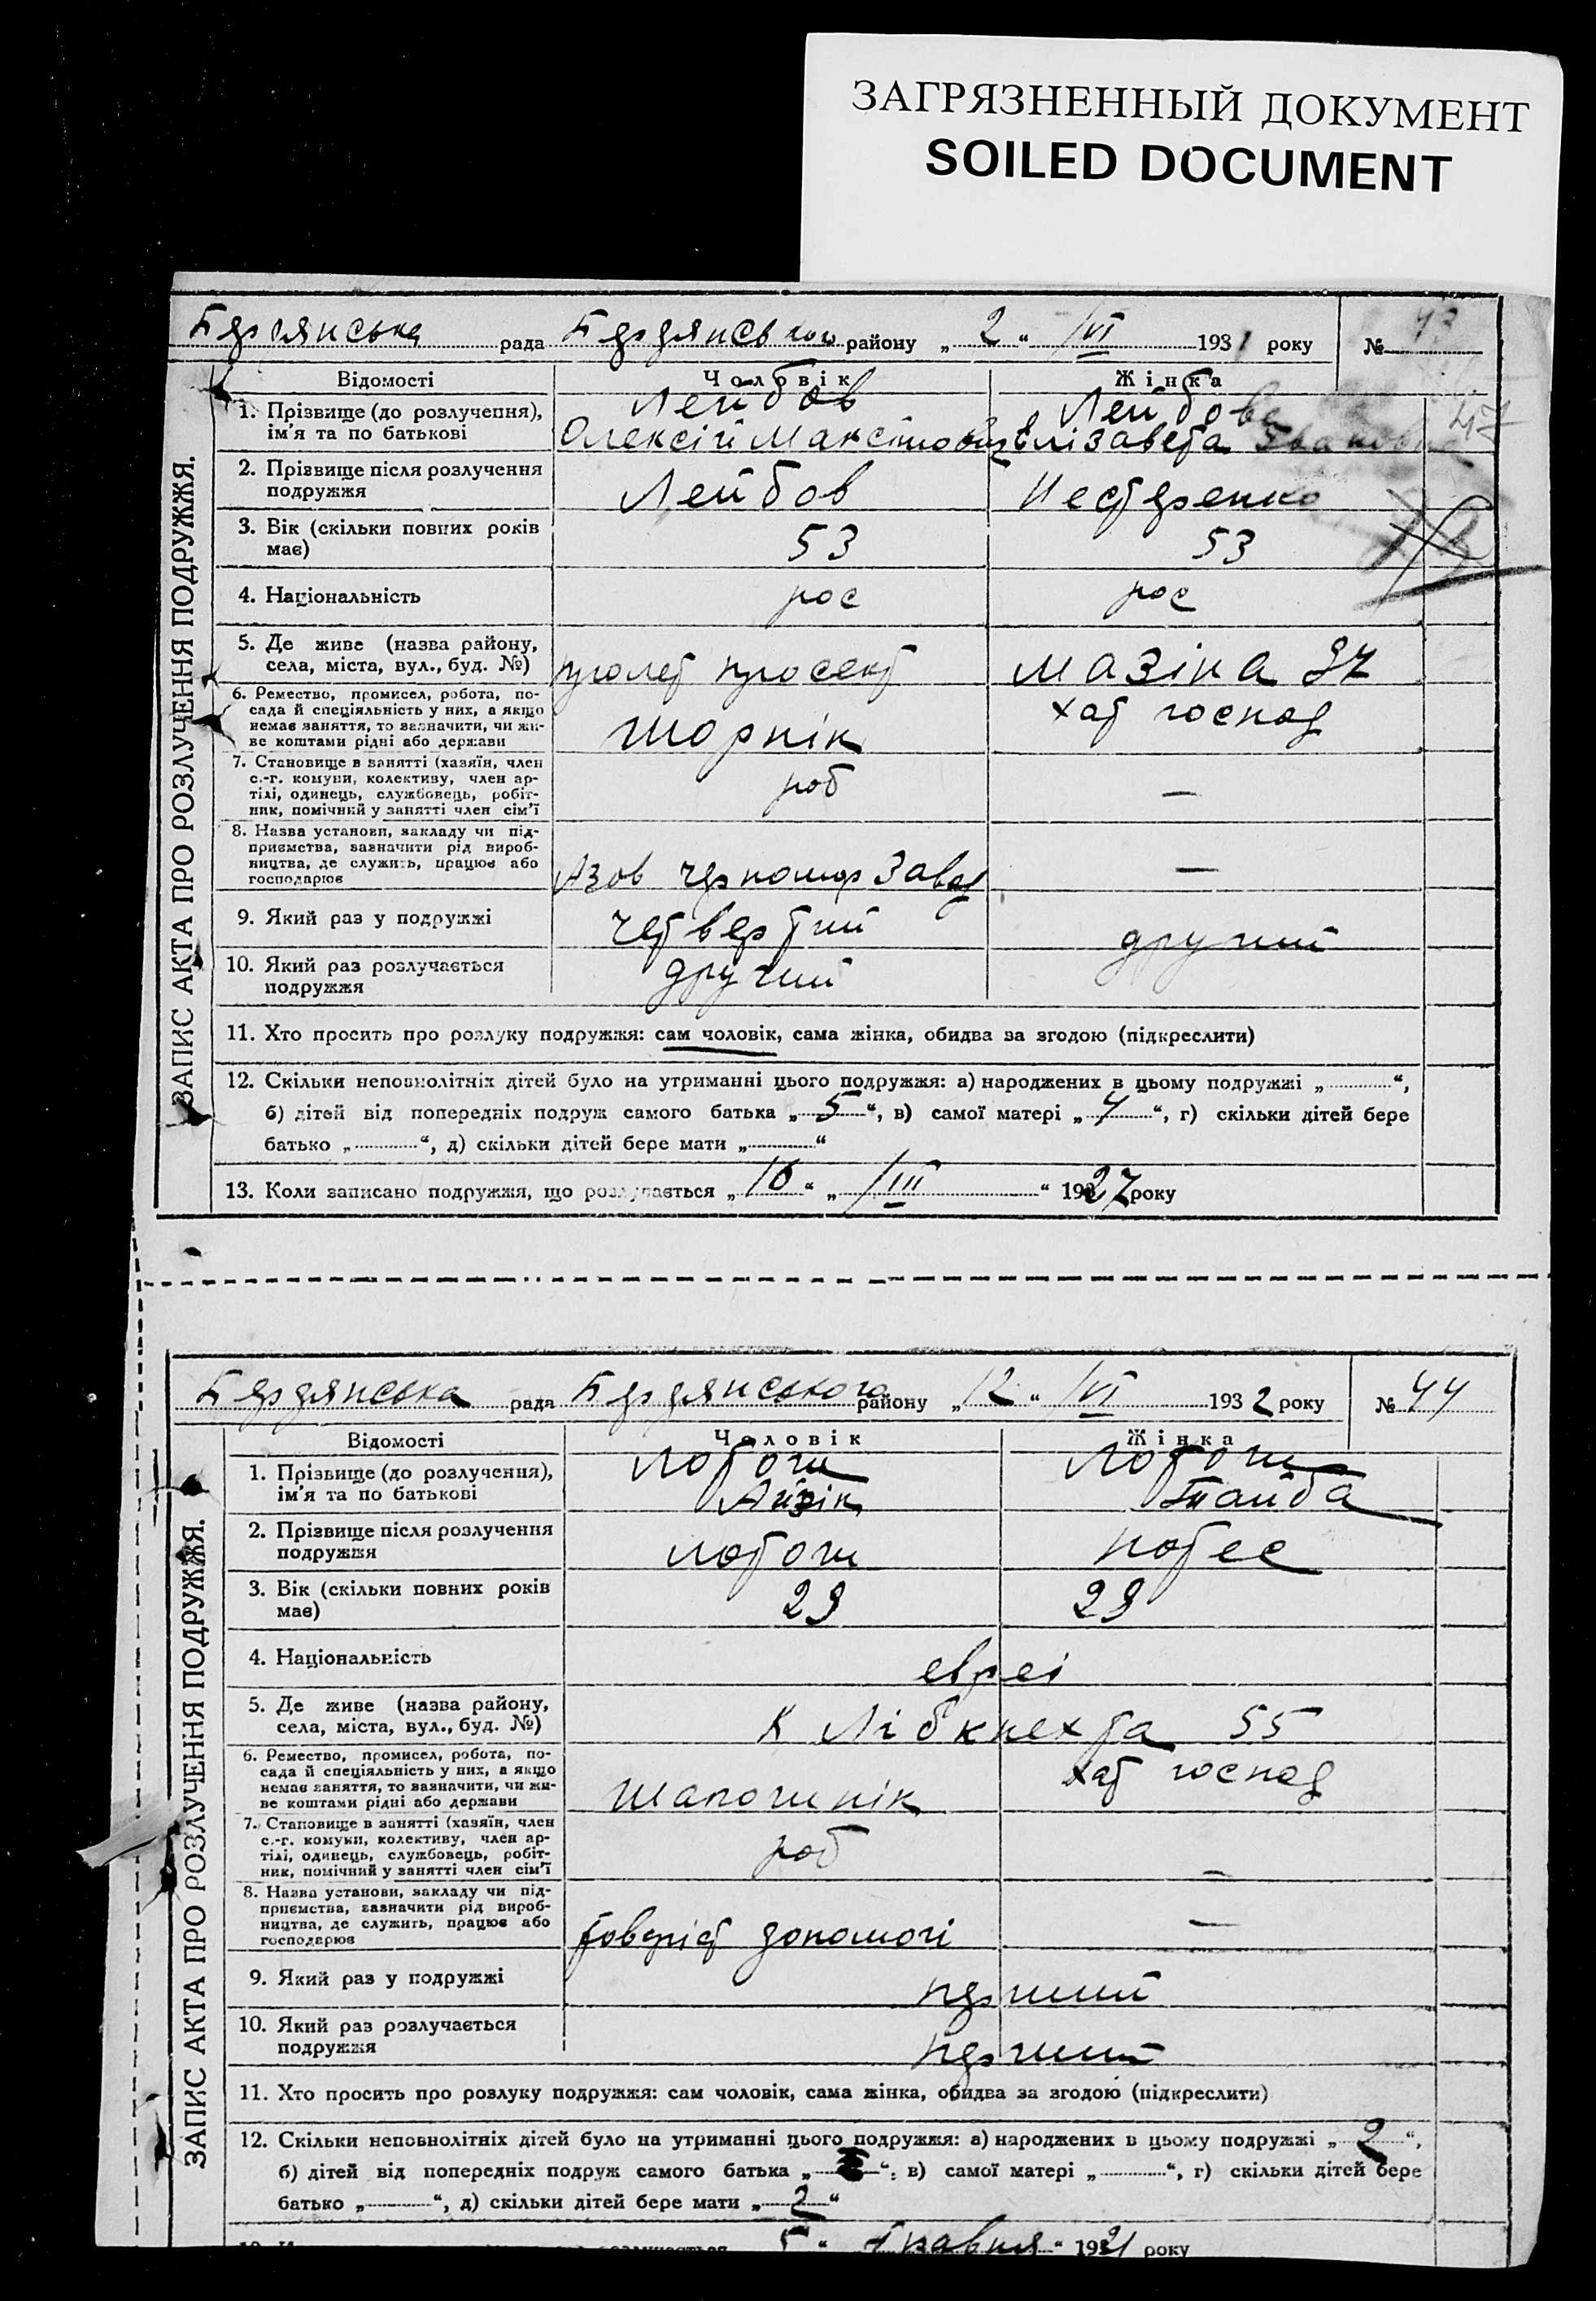 ЗАГРЯЗНЕННЫЙ ДОКУМЕНТ
SOILED DOCUMENT
Бердянська рада Бердянського району „ 2 “ VI 1931 року №
ЗАПИС АКТА ПРО РОЗЛУЧЕННЯ ПОДРУЖЖЯ.
Відомості Чоловік Жінка
1. Прізвище (до розлучення), Лейбов Лейбова 47
ім'я та по батькові Олексій Максімович Єлізавета
2. Прізвище після розлучення
подружжя Лейбов Нестеренко
3. Вік (скільки повних років
має) 53 53
4. Національність рос рос
5. Де живе (назва району,
села, міста, вул., буд. №) пролет проспект Мазіна 37
6. Ремество, промисел, робота, по-
сада й спеціяльність у них, а якщо
немає заняття, то зазначити, чи жи-
ве коштами рідні або держави Шорнік хат господ
7. Становище в занятті (хазяїн, член
с.-г. комуни, колективу, член ар-
тілі, одинець, службовець, робіт-
ник, помічний у занятті член сім'ї роб —
8. Назва установи, закладу чи під-
приємства, зазначити рід вироб-
ництва, де служить, працює або
господарює Азов черномор Завод —
9. Який раз у подружжі четвертий другий
10. Який раз розлучається
подружжя другий
11. Хто просить про розлуку подружжя: сам чоловік, сама жінка, обидва за згодою (підкреслити)
12. Скільки неповнолітніх дітей було на утриманні цього подружжя: а) народжених в цьому подружжі „ “,
б) дітей від попередніх подруж самого батька „ 5 “, в) самої матері „ 4 “, г) скільки дітей бере
батько „ “, д) скільки дітей бере мати „ “
13. Коли записано подружжя, що розлучається „ 10 “ „ III “ 1927 року
Бердянська рада Бердянського району „ 12 “ VI 1932 року № 44
ЗАПИС АКТА ПРО РОЗЛУЧЕННЯ ПОДРУЖЖЯ.
Відомості Чоловік Жінка
1. Прізвище (до розлучення),
ім'я та по батькові Айзік Тайба
2. Прізвище після розлучення
подружжя
3. Вік (скільки повних років
має) 29 29
4. Національність евреі
5. Де живе (назва району,
села, міста, вул., буд. №) К Лібкнехта 55
6. Ремество, промисел, робота, по-
сада й спеціяльність у них, а якщо
немає заняття, то зазначити, чи жи-
ве коштами рідні або держави Шапошнік хат господ
7. Становище в занятті (хазяїн, член
с.-г. комуни, колективу, член ар-
тілі, одинець, службовець, робіт-
ник, помічний у занятті член сім'ї роб —
8. Назва установи, закладу чи під-
приємства, зазначити рід вироб-
ництва, де служить, працює або
господарює Товаріст допомогі —
9. Який раз у подружжі перший
10. Який раз розлучається
подружжя перший
11. Хто просить про розлуку подружжя: сам чоловік, сама жінка, обидва за згодою (підкреслити)
12. Скільки неповнолітніх дітей було на утриманні цього подружжя: а) народжених в цьому подружжі „ 2 “,
б) дітей від попередніх подруж самого батька „ “, в) самої матері „ “, г) скільки дітей бере
батько „ “, д) скільки дітей бере мати „ 2 “
5 “ травня “ 192 року